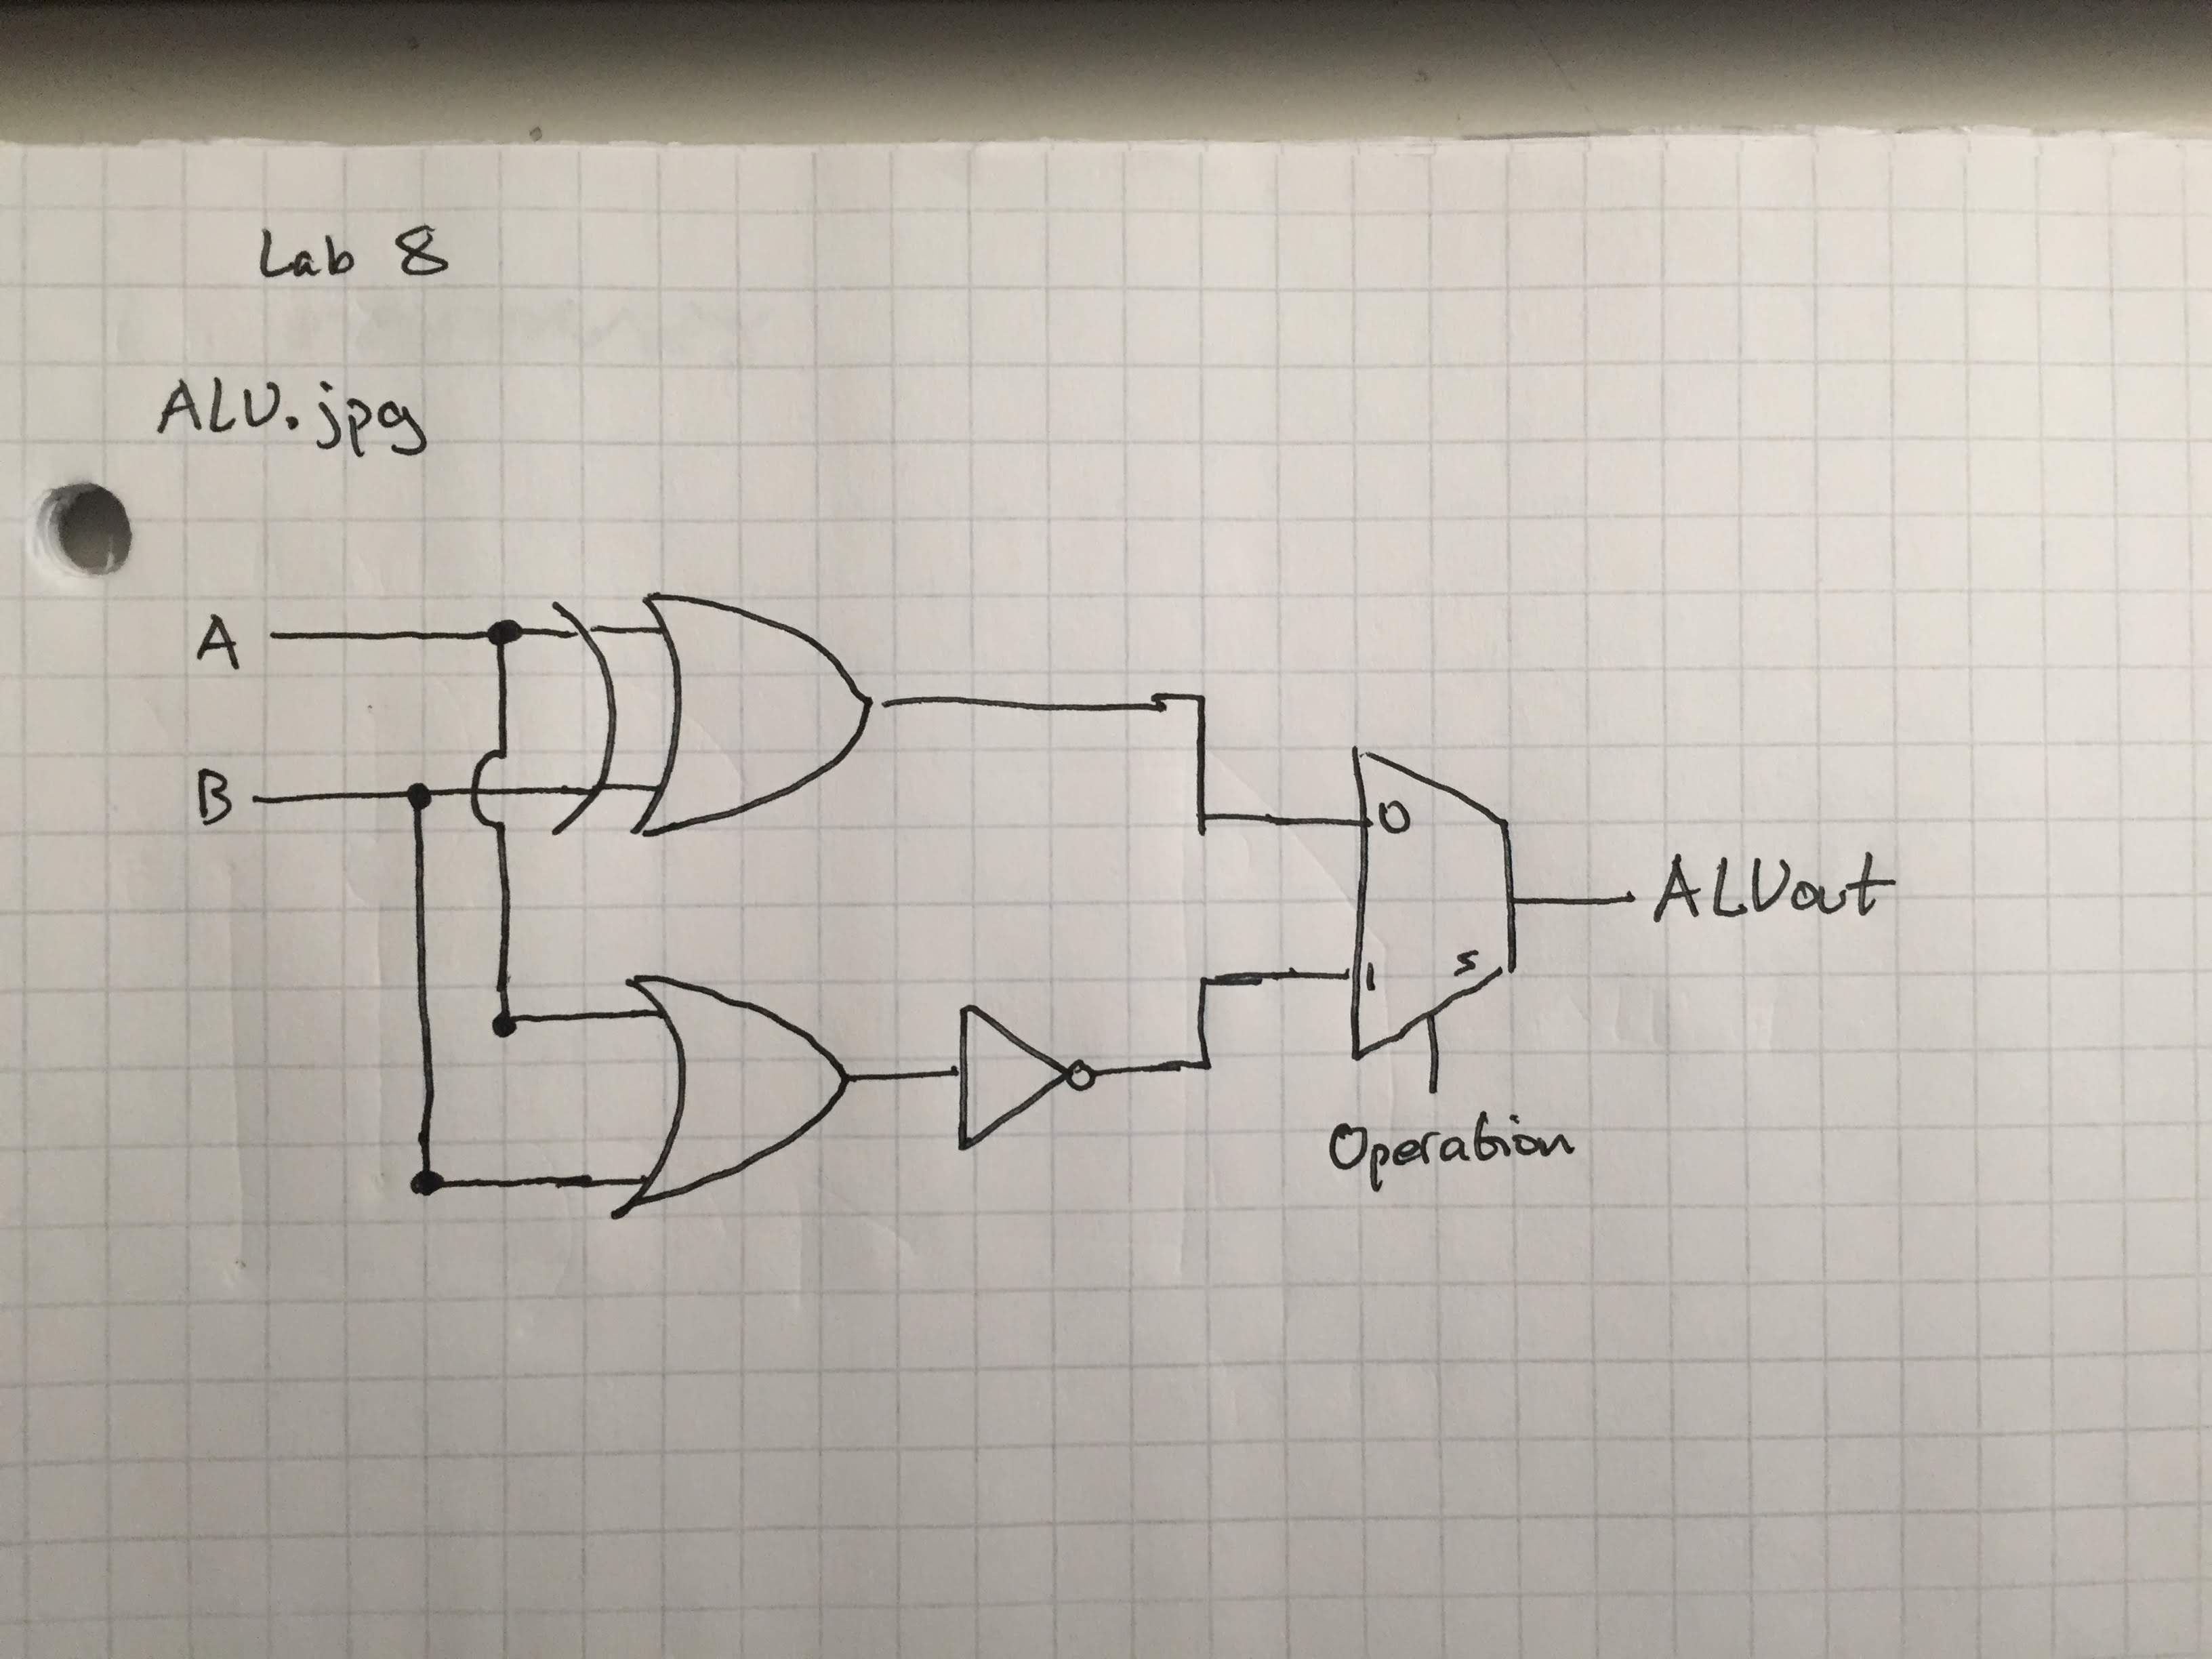 Lab 8
ALU.jpg
A
B
0
ALUout
1
S
Operation